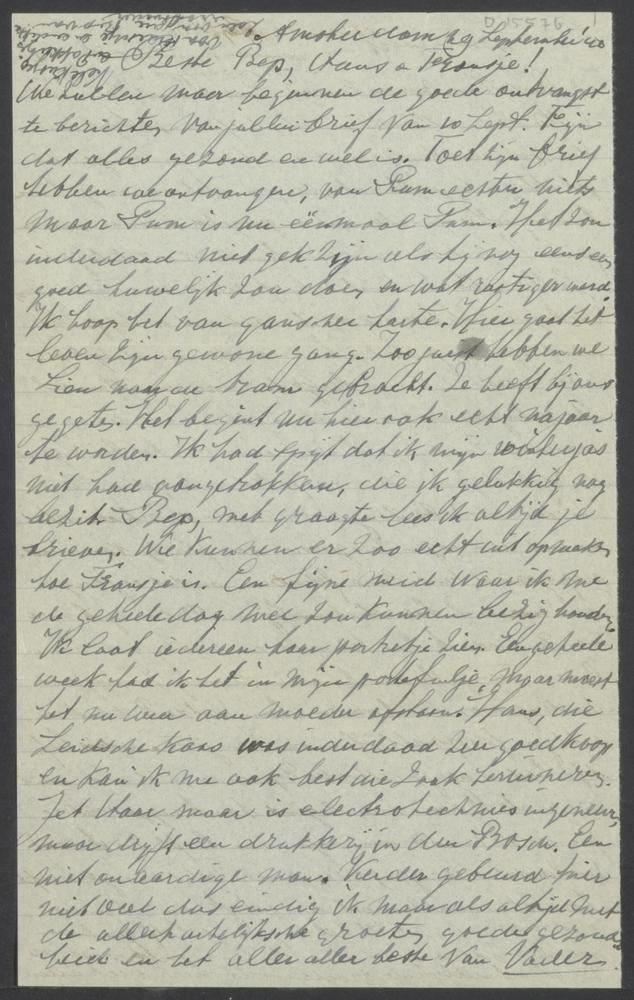 D 15576
Amsterdam 29 September '40
Beste Bep, Hans en Fransje!
We zullen maar beginnen de goede ontvangst
te berichten van jullie brief van 10 Sept. Fijn
dat alles gezond en wel is. Toet zijn brief
hebben we ontvangen, van Pum echter niets
maar Pum is nu éénmaal Pum. Het zou
inderdaad niet gek zijn als hij nog eens een
goed huwelijk zou doen en wat rustiger werd.
Ik hoop het van ganscher harte. Hier gaat het
leven zijn gewone gang. Zoo juist hebben we
Lien naar de tram gebracht. Ze heeft bij ons
gegeten. Het begint nu hier ook echt najaar
te worden. Ik had spijt dat ik mijn winterjas
niet had aangetrokken, die ik gelukkig nog
bezit. Bep, met graagte lees ik altijd je
brieven. We kunnen er zoo echt uit opmaken
hoe Fransje is. Een fijne meid waar ik me
de geheele dag mee zou kunnen bezig houden.
Ik laat iedereen haar portretje zien. Een geheele
week had ik het in mijn portefeuille, maar moest
het nu weer aan moeder afstaan. Hans, die
Leidsche kaas was inderdaad zeer goedkoop
en kan ik me ook best die zaak herinneren.
Jet Haar maar is electrotechnies ingenieur,
maar drijft een drukkerij in den Bosch. Een
niet onaardige man. Verder gebeurd hier
niet veel dus eindig ik maar als altijd met
de allerhartelijkste groeten, goede gezond-
heid en het aller aller beste van Vader